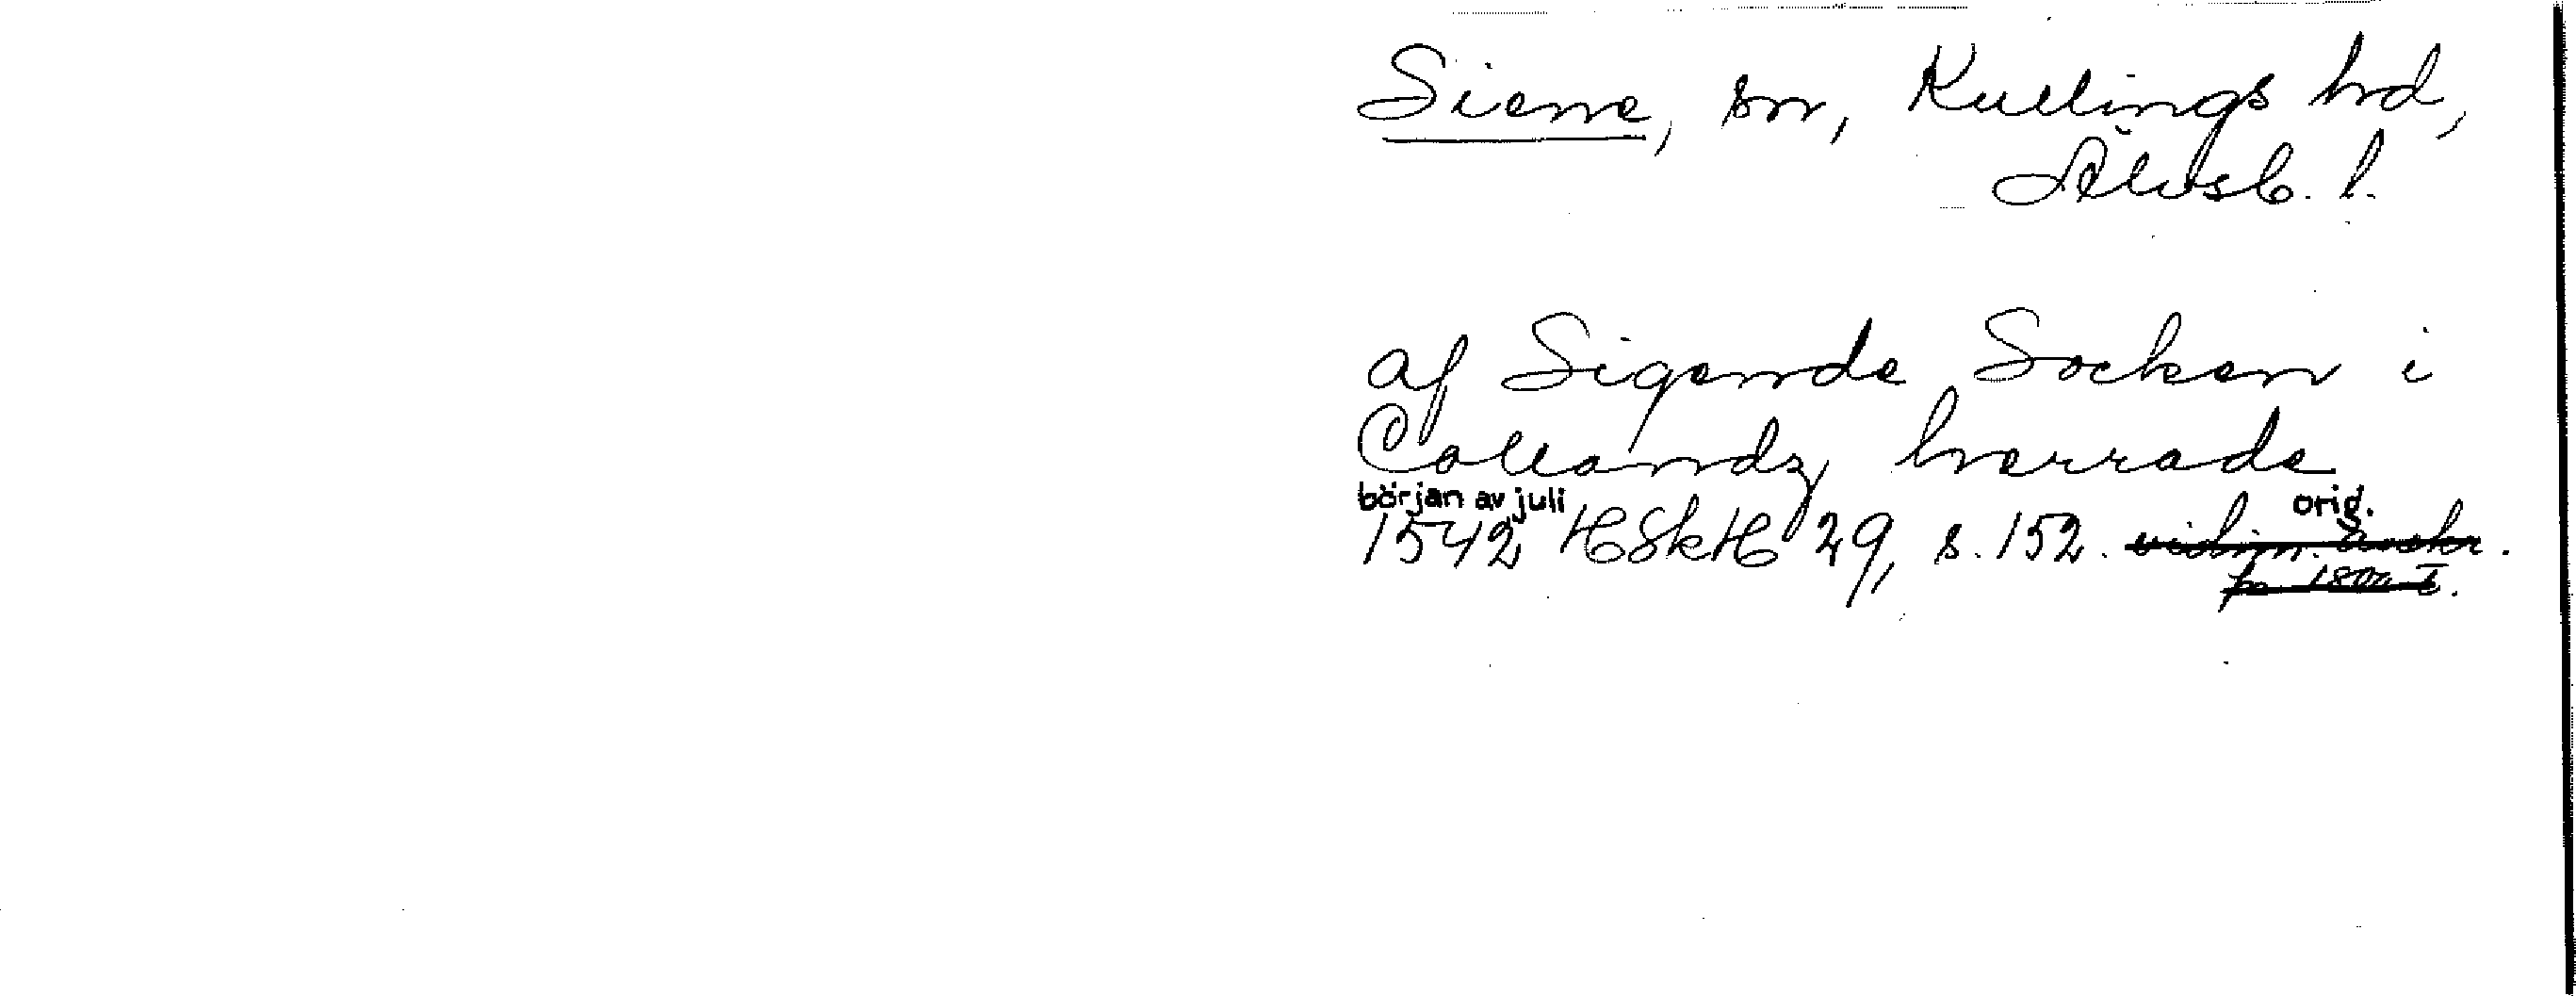 Siene, sn, Kullings hd,
Älvsb. l.
af Sigende Socken i
Collandz herrade
början av juli
orig.
1542 HSkH 29, s. 152. vidim. avskr.